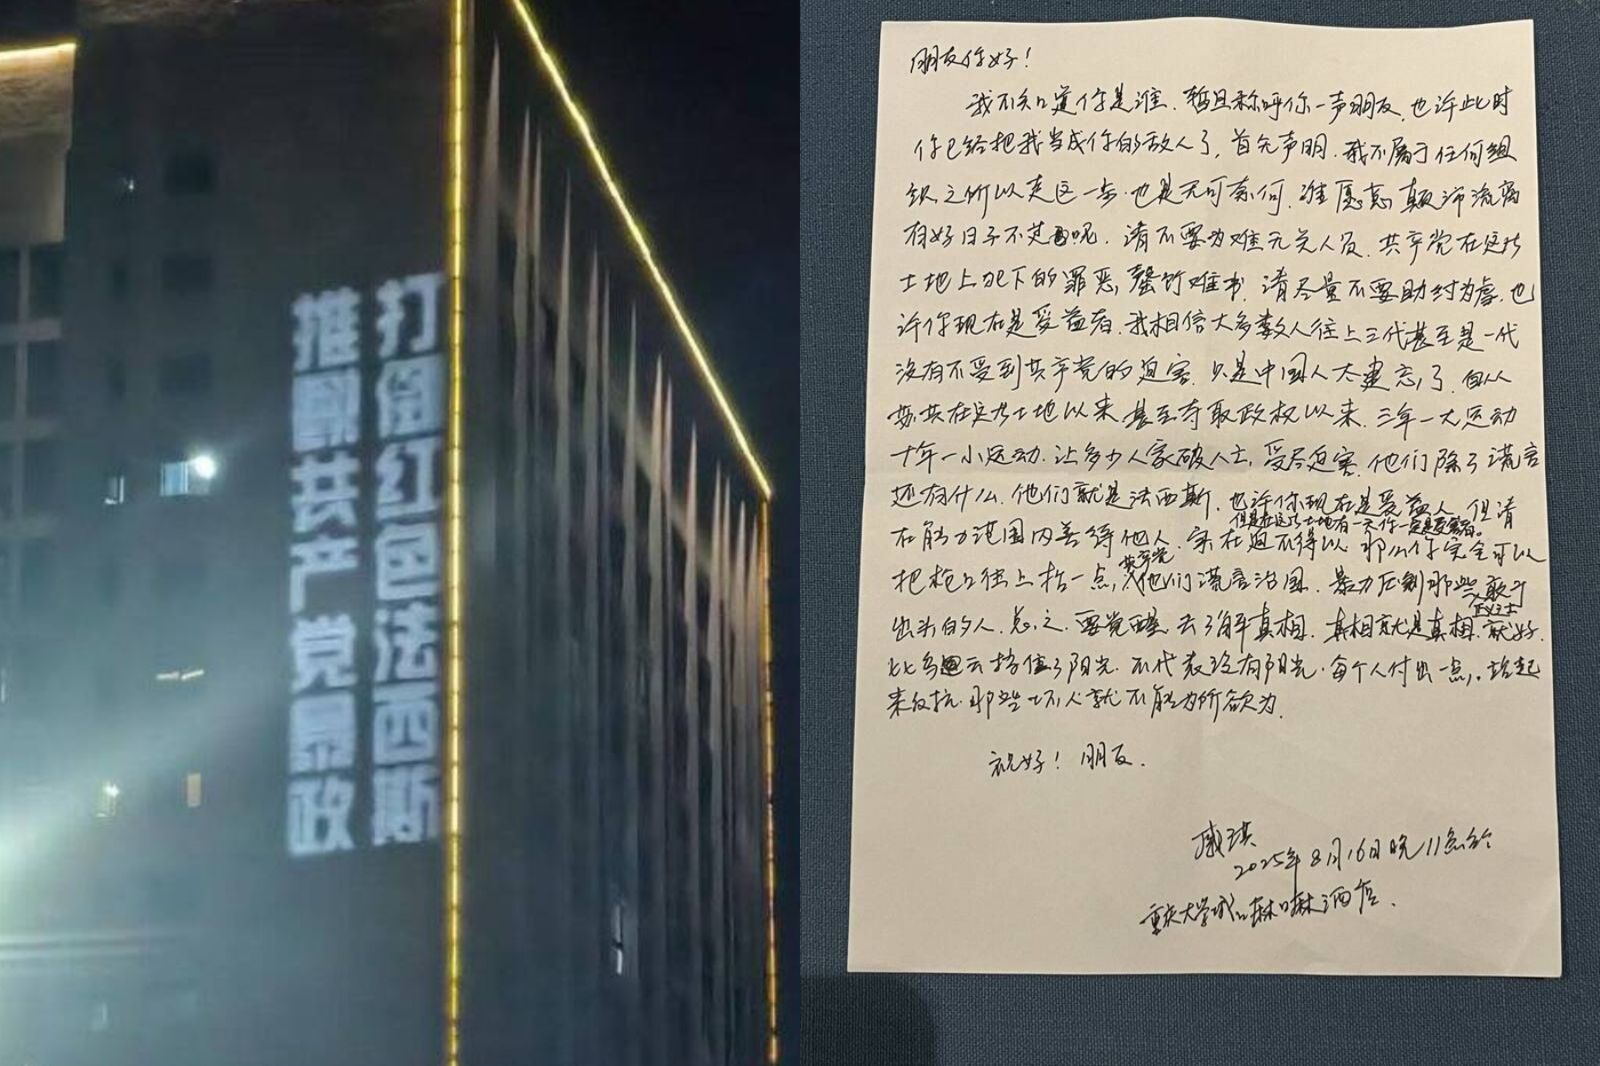 打倒红色法西斯
推翻共产党暴政
朋友你好！
我不知道你是谁．暂且称呼你一声朋友．也许此时
你已给把我当成你的敌人了，首先声明．我不属于任何组
织．之所以走这一步．也是无可奈何．谁愿意颠沛流离
有好日子不过呢．请不要为难无关人员．共产党在这片
土地上犯下的罪恶，罄竹难书．请尽量不要助纣为虐．也
许你现在是受益者．我相信大多数人往上三代甚至是一代
没有不受到共产党的迫害．只是中国人太健忘了．自从
苏共在这片土地以来．甚至夺取政权以来．三年一大运动
十年一小运动．让多少人家破人亡，受尽迫害．他们除了谎言
还有什么．他们就是法西斯．也许你现在是受益人，但请
但是在这片土地有一天你一定是受害者。
在能力范围内善待他人．实在迫不得以．那么你完全可以
把枪口往上抬一点，共产党他们谎言治国．暴力压制那些敢于
出头的人．总之．要觉醒．去了解真相．真相就是真相．就好
比乌云挡住了阳光．不代表没有阳光．每个人付出一点，站起
来反抗．那些坏人就不能为所欲为．
祝好！朋友．
戚琪
2025年8月16日晚11点
重庆大学城
酒店．